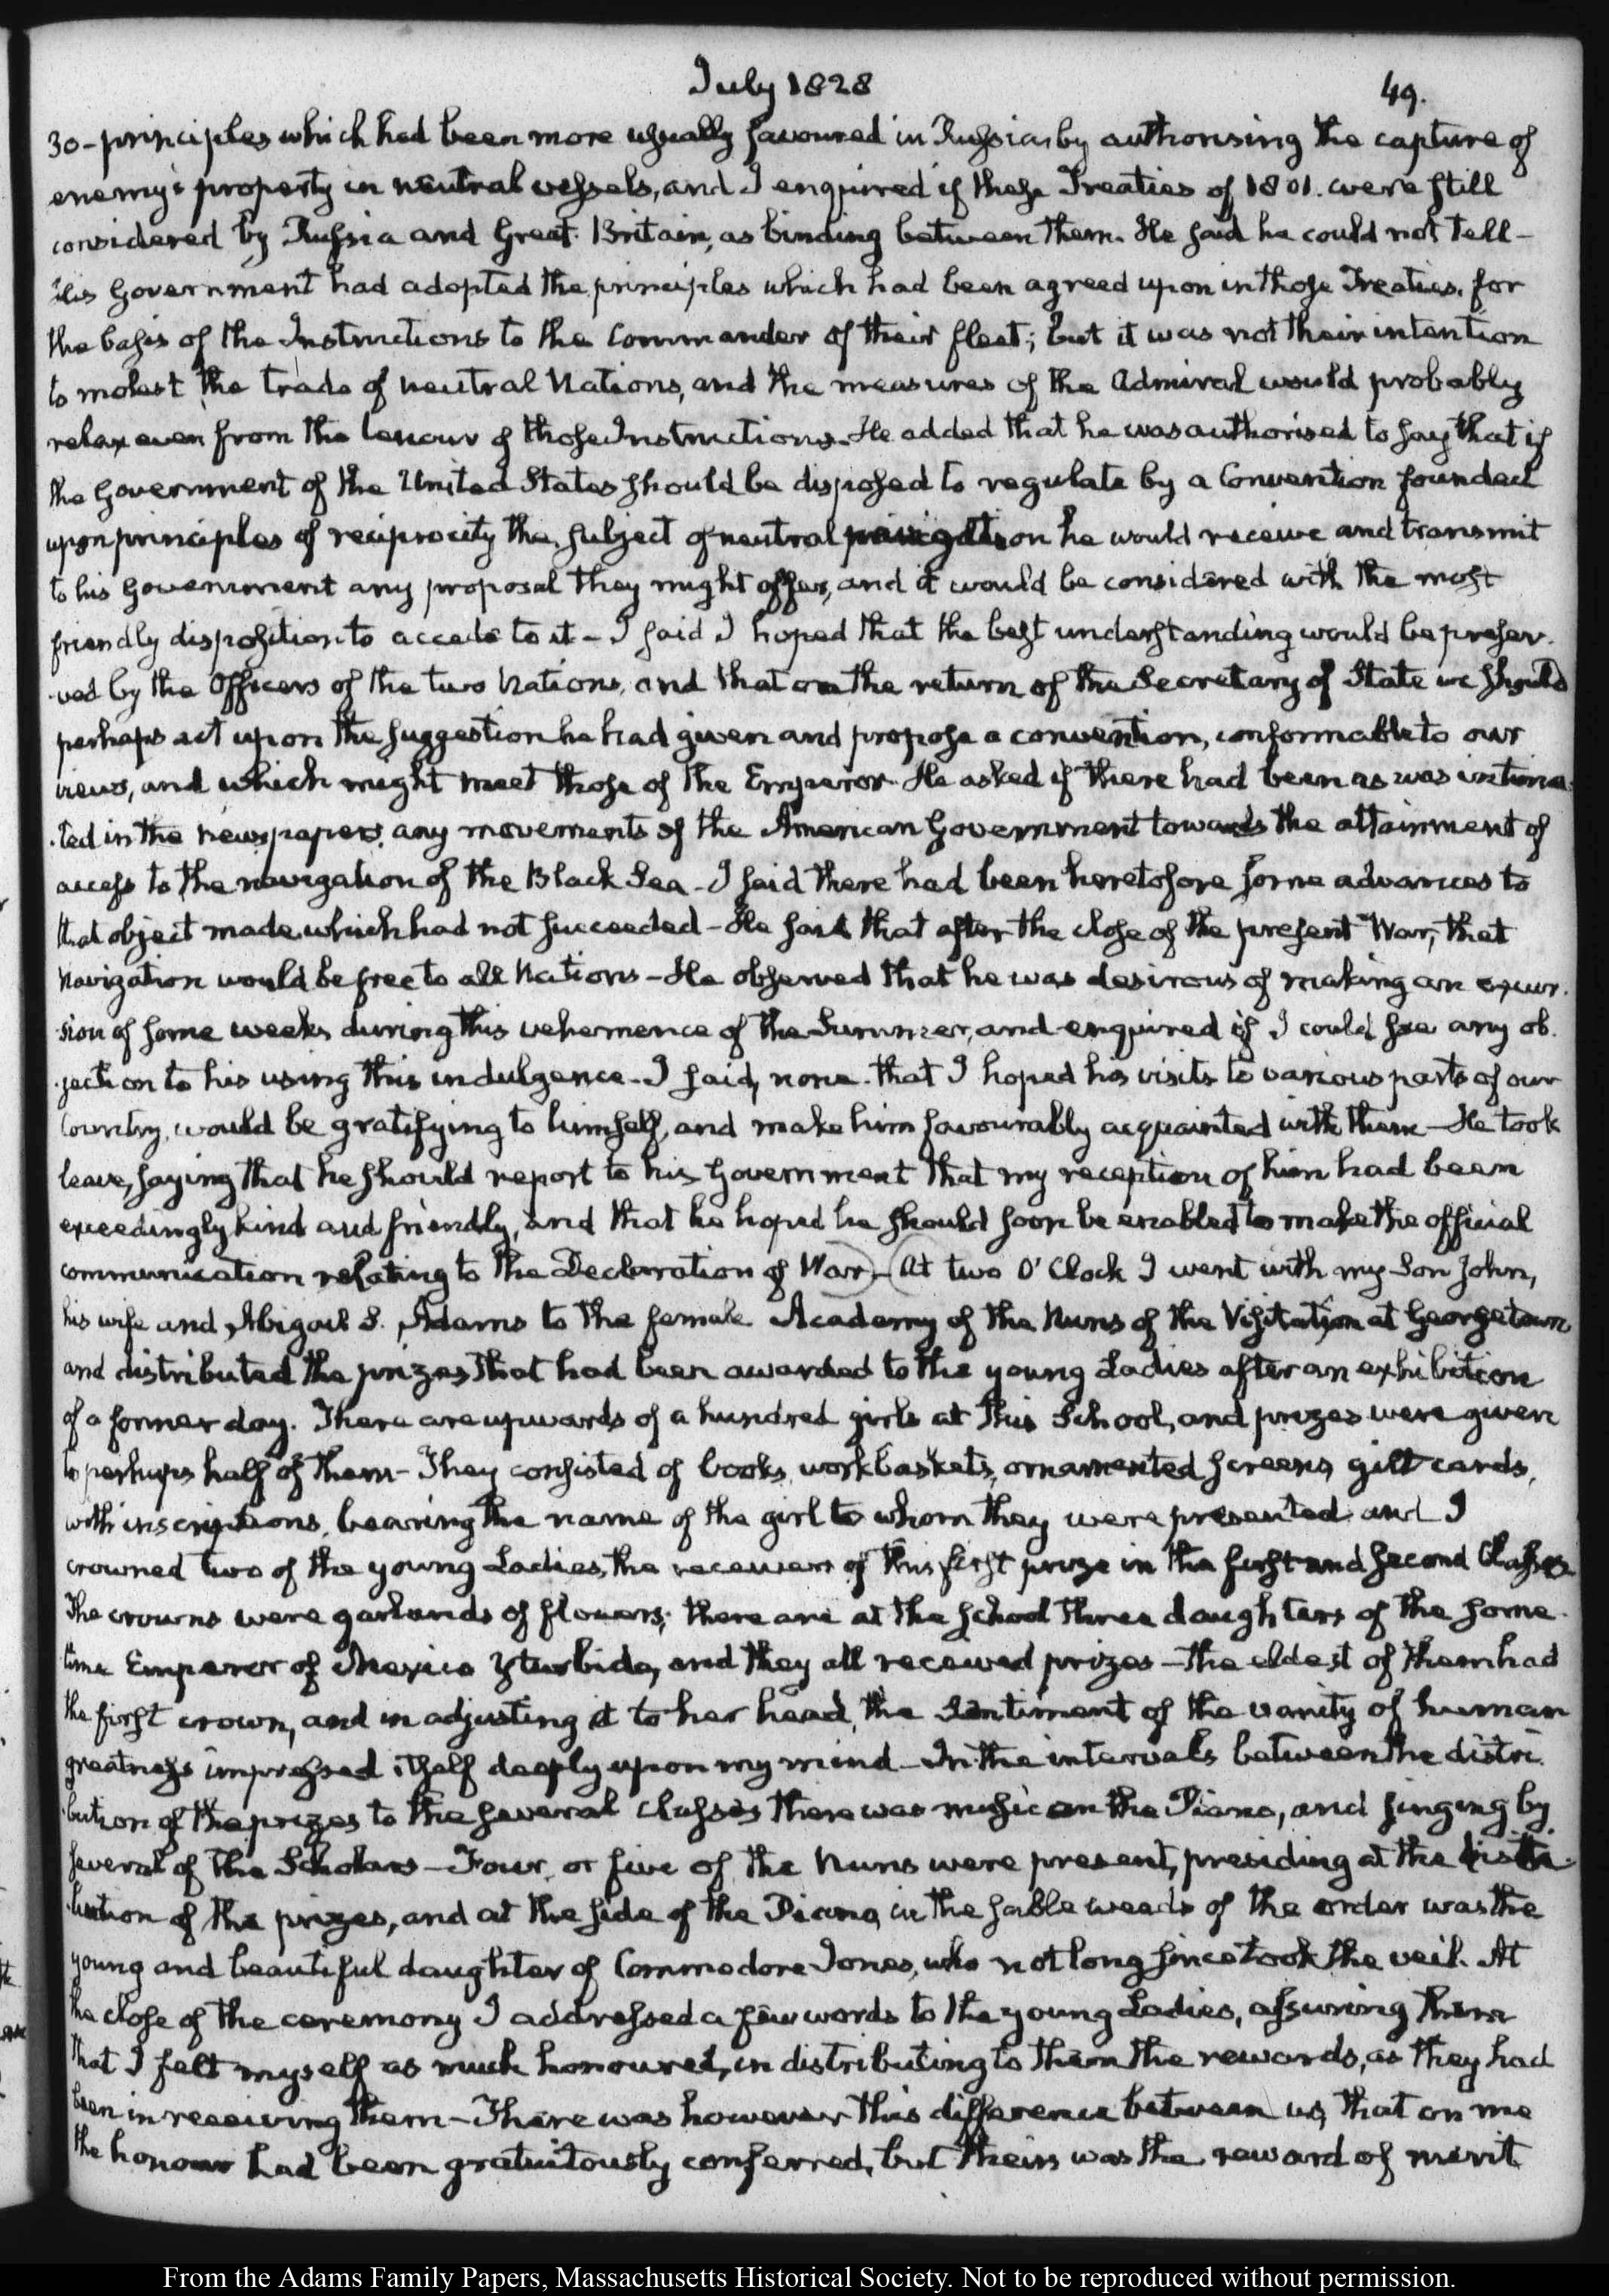 July 1828
49.
30- principles which had been more usually favoured in Russia, by authorising the capture of
enemy's property in neutral vessels, and I enquired if these Treaties of 1801. were still
considered by Russia and Great Britain, as binding between them. He said he could not tell—
His Government had adopted the principles which had been agreed upon in those Treaties, for
the basis of the Instructions to the Commander of their fleet; but it was not their intention
to molest the trade of neutral Nations, and the measures of the Admiral would probably
relax even from the tenour of those Instructions. He added that he was authorised to say that if
the Government of the United States should be disposed to regulate by a Convention founded
upon principles of reciprocity the subject of neutral navigation he would receive and transmit
to his Government any proposal they might offer, and it would be considered with the most
friendly disposition to accede to it— I said I hoped that the best understanding would be preser-
-ved by the Officers of the two Nations, and that on the return of the Secretary of State we should
perhaps act upon the suggestion he had given and propose a convention, conformable to our
views, and which might meet those of the Emperor. He asked if there had been as was intima-
-ted in the newspapers, any movements of the American Government towards the attainment of
access to the navigation of the Black Sea— I said there had been heretofore some advances to
that object made, which had not succeeded— He said that after the close of the present War, that
Navigation would be free to all Nations— He observed that he was desirous of making an excur-
-sion of some weeks during this vehemence of the Summer, and enquired if I could see any ob-
-jection to his using this indulgence— I said, none. that I hoped his visits to various parts of our
Country, would be gratifying to himself, and make him favourably acquainted with them— He took
leave, saying that he should report to his Government that my reception of him had been
exceedingly kind and friendly, and that he hoped he should soon be enabled to make the official
communication relating to the Declaration of War— At two O'Clock I went with my Son John,
his wife and Abigail S. Adams to the female Academy of the Nuns of the Visitation at Georgetown
and distributed the prizes that had been awarded to the young Ladies after an exhibition
of a former day. There are upwards of a hundred girls at this School, and prizes were given
to perhaps half of them— They consisted of books, workbaskets, ornamented screens, gilt cards,
with inscriptions, bearing the name of the girl to whom they were presented and I
crowned two of the young Ladies, the receivers of this first prize in the first and second Classes
The crowns were garlands of flowers; there are at the school three daughters of the some-
-time Emperor of Mexico Yturbide, and they all received prizes— the eldest of them had
the first crown, and in adjusting it to her head, the sentiment of the vanity of human
greatness impressed itself deeply upon my mind— In the intervals between the distri-
-bution of the prizes to the several classes there was music on the Piano, and singing by
several of the Scholars— Four or five of the Nuns were present, presiding at the distri-
-bution of the prizes, and at the side of the Piano, in the sable weeds of the order was the
young and beautiful daughter of Commodore Jones, who not long since took the veil. At
the close of the ceremony I addressed a few words to the young Ladies, assuring them
that I felt myself as much honoured, in distributing to them the rewards, as they had
been in receiving them— There was however this difference between us, that on me
the honour had been gratuitously conferred, but theirs was the reward of merit
From the Adams Family Papers, Massachusetts Historical Society. Not to be reproduced without permission.